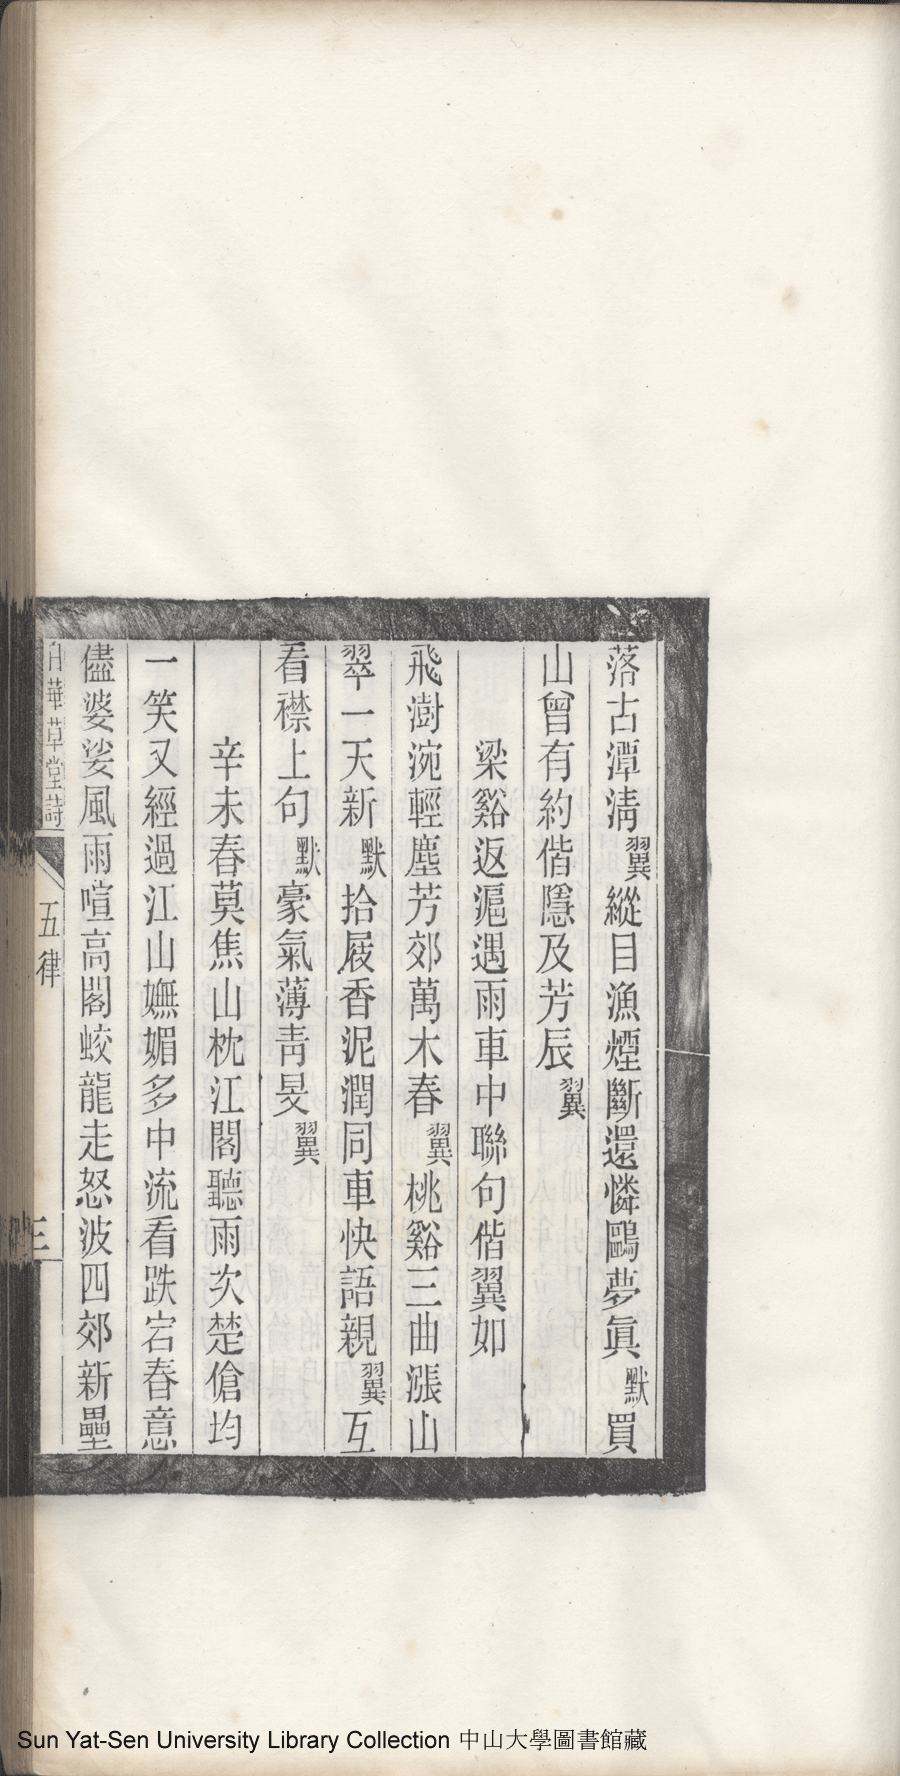 落古潭清翼縱目漁煙斷還憐鷗夢眞默買
山曾有約偕隱及芳辰翼
梁谿返滬遇雨車中聯句偕翼如
飛澍涴輕塵芳郊萬木春翼桃谿三曲漲山
翠一天新默拾屐香泥潤同車快語親翼互
看襟上句默豪氣薄靑旻翼
辛未春莫焦山枕江閣聽雨次楚傖均
一笑又經過江山嫵媚多中流看跌宕春意
儘婆娑風雨喧高閣蛟龍走怒波四郊新壘
白華草堂詩
五律
三
Sun Yat-Sen University Library Collection 中山大學圖書館藏